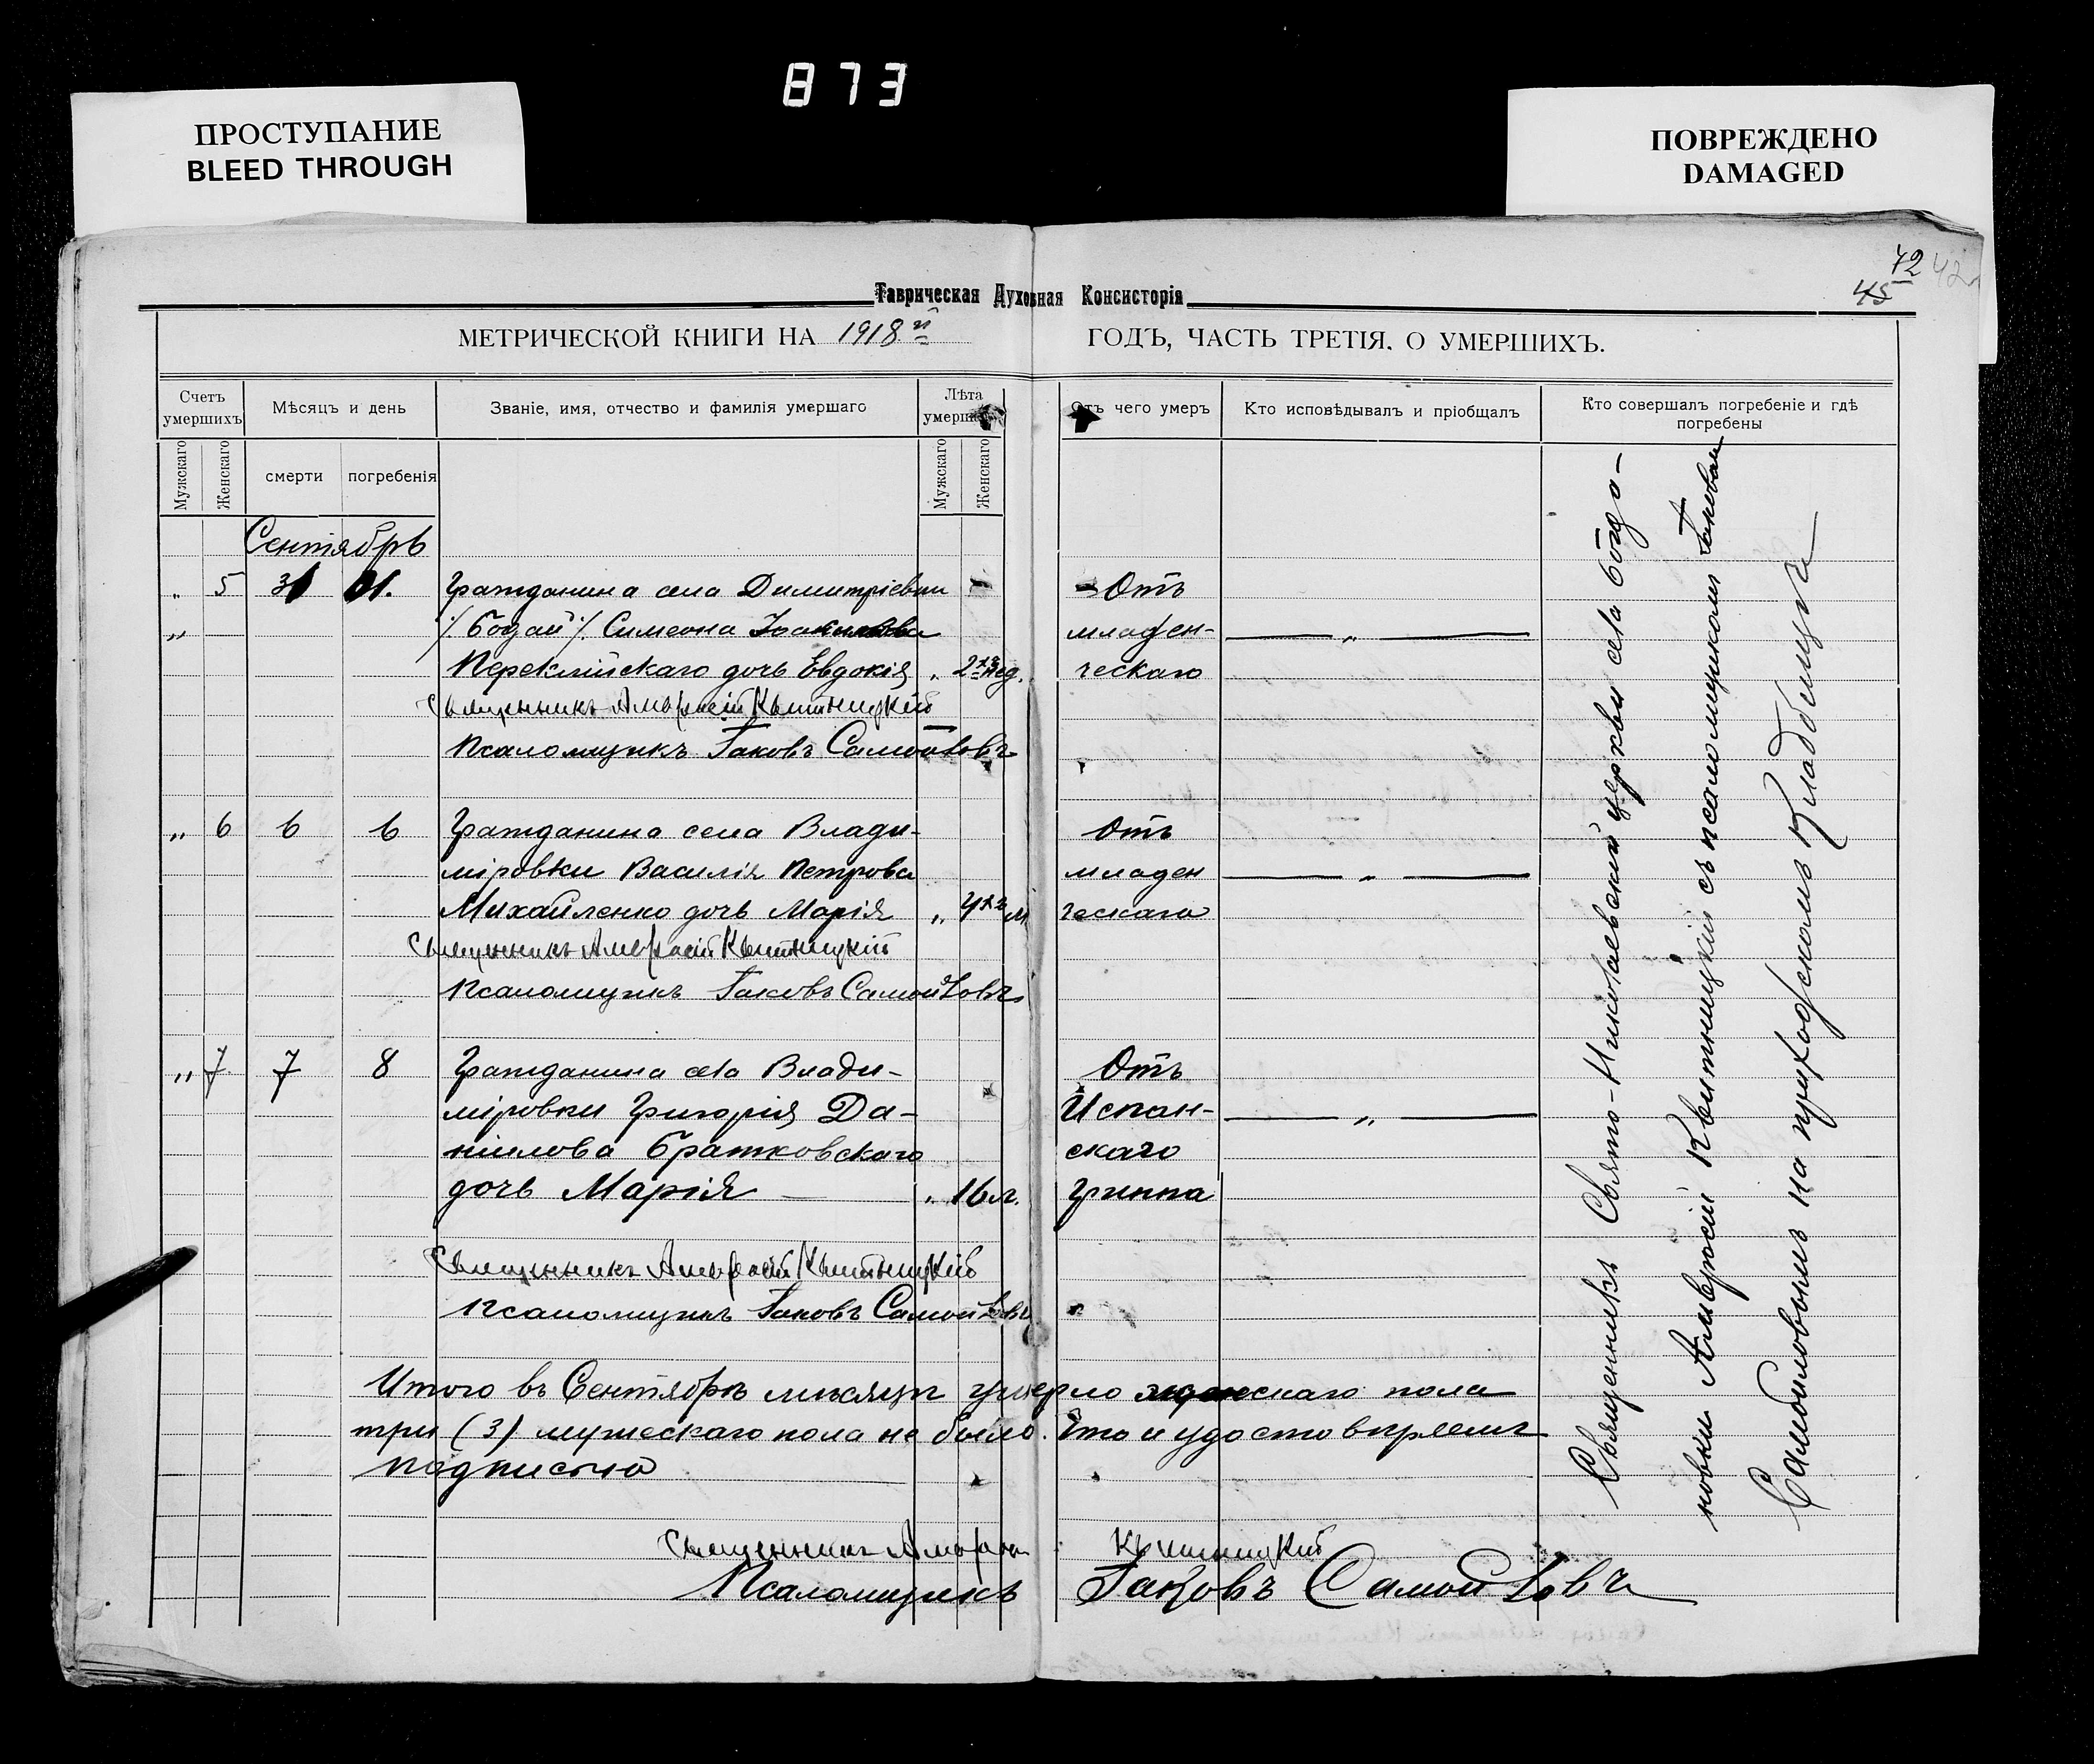 873
ПРОСТУПАНИЕ
BLEED THROUGH
ПОВРЕЖДЕНО
DAMAGED
42
45
Таврическая Духовная Консисторія
МЕТРИЧЕСКОЙ КНИГИ НА 1918й ГОДЪ, ЧАСТЬ ТРЕТІЯ. О УМЕРШИХЪ.
Счетъ умершихъ
Мѣсяцъ и день
Званіе, имя, отчество и фамилія умершаго
Лѣта
Отъ чего умеръ
Кто исповѣдывалъ и пріобщалъ
Кто совершалъ погребеніе и гдѣ погребены
Мужскаго
Женскаго
смерти
погребенія
Мужскаго
Женскаго
Сентябрь
" 5 31 01. Гражданина села Димитріевки Отъ
" /. Богай /. Симеона младен- "
Переклійскаго дочь Евдокія " 2хъ нед. ческаго
Священникъ Амвросій Квитницкій
Псаломщикъ Іаковъ Самойловъ
" 6 6 6 Гражданина села Влади- Отъ
міровки Василія Петрова младен "
Михайленко дочь Марія " 4хъ м. ческаго
Священникъ Амвросій Квитницкій
Псаломщикъ Іаковъ Самойловъ
" 7 7 8 Гражданина села Влади- Отъ
міровки Григорія Да- Испан- "
ніилова Братковскаго скаго
дочь Марія — " 16 л. гриппа
Священникъ Амвросій Квитницкій
Псаломщикъ Іаковъ Самойловъ
Итого въ Сентябрѣ мѣсяцѣ умерло женскаго пола
три (3) мужескаго пола не было. Что и удостовѣряемъ
подписью
Священникъ Амвросій Квитницкій
Псаломщикъ Іаковъ Самойловъ
Священникъ Свято-Николаевской церкви села Богда-
новки Амвросій Квитницкій съ псаломщикомъ Іаковомъ
Самойловымъ на приходскомъ кладбищѣ